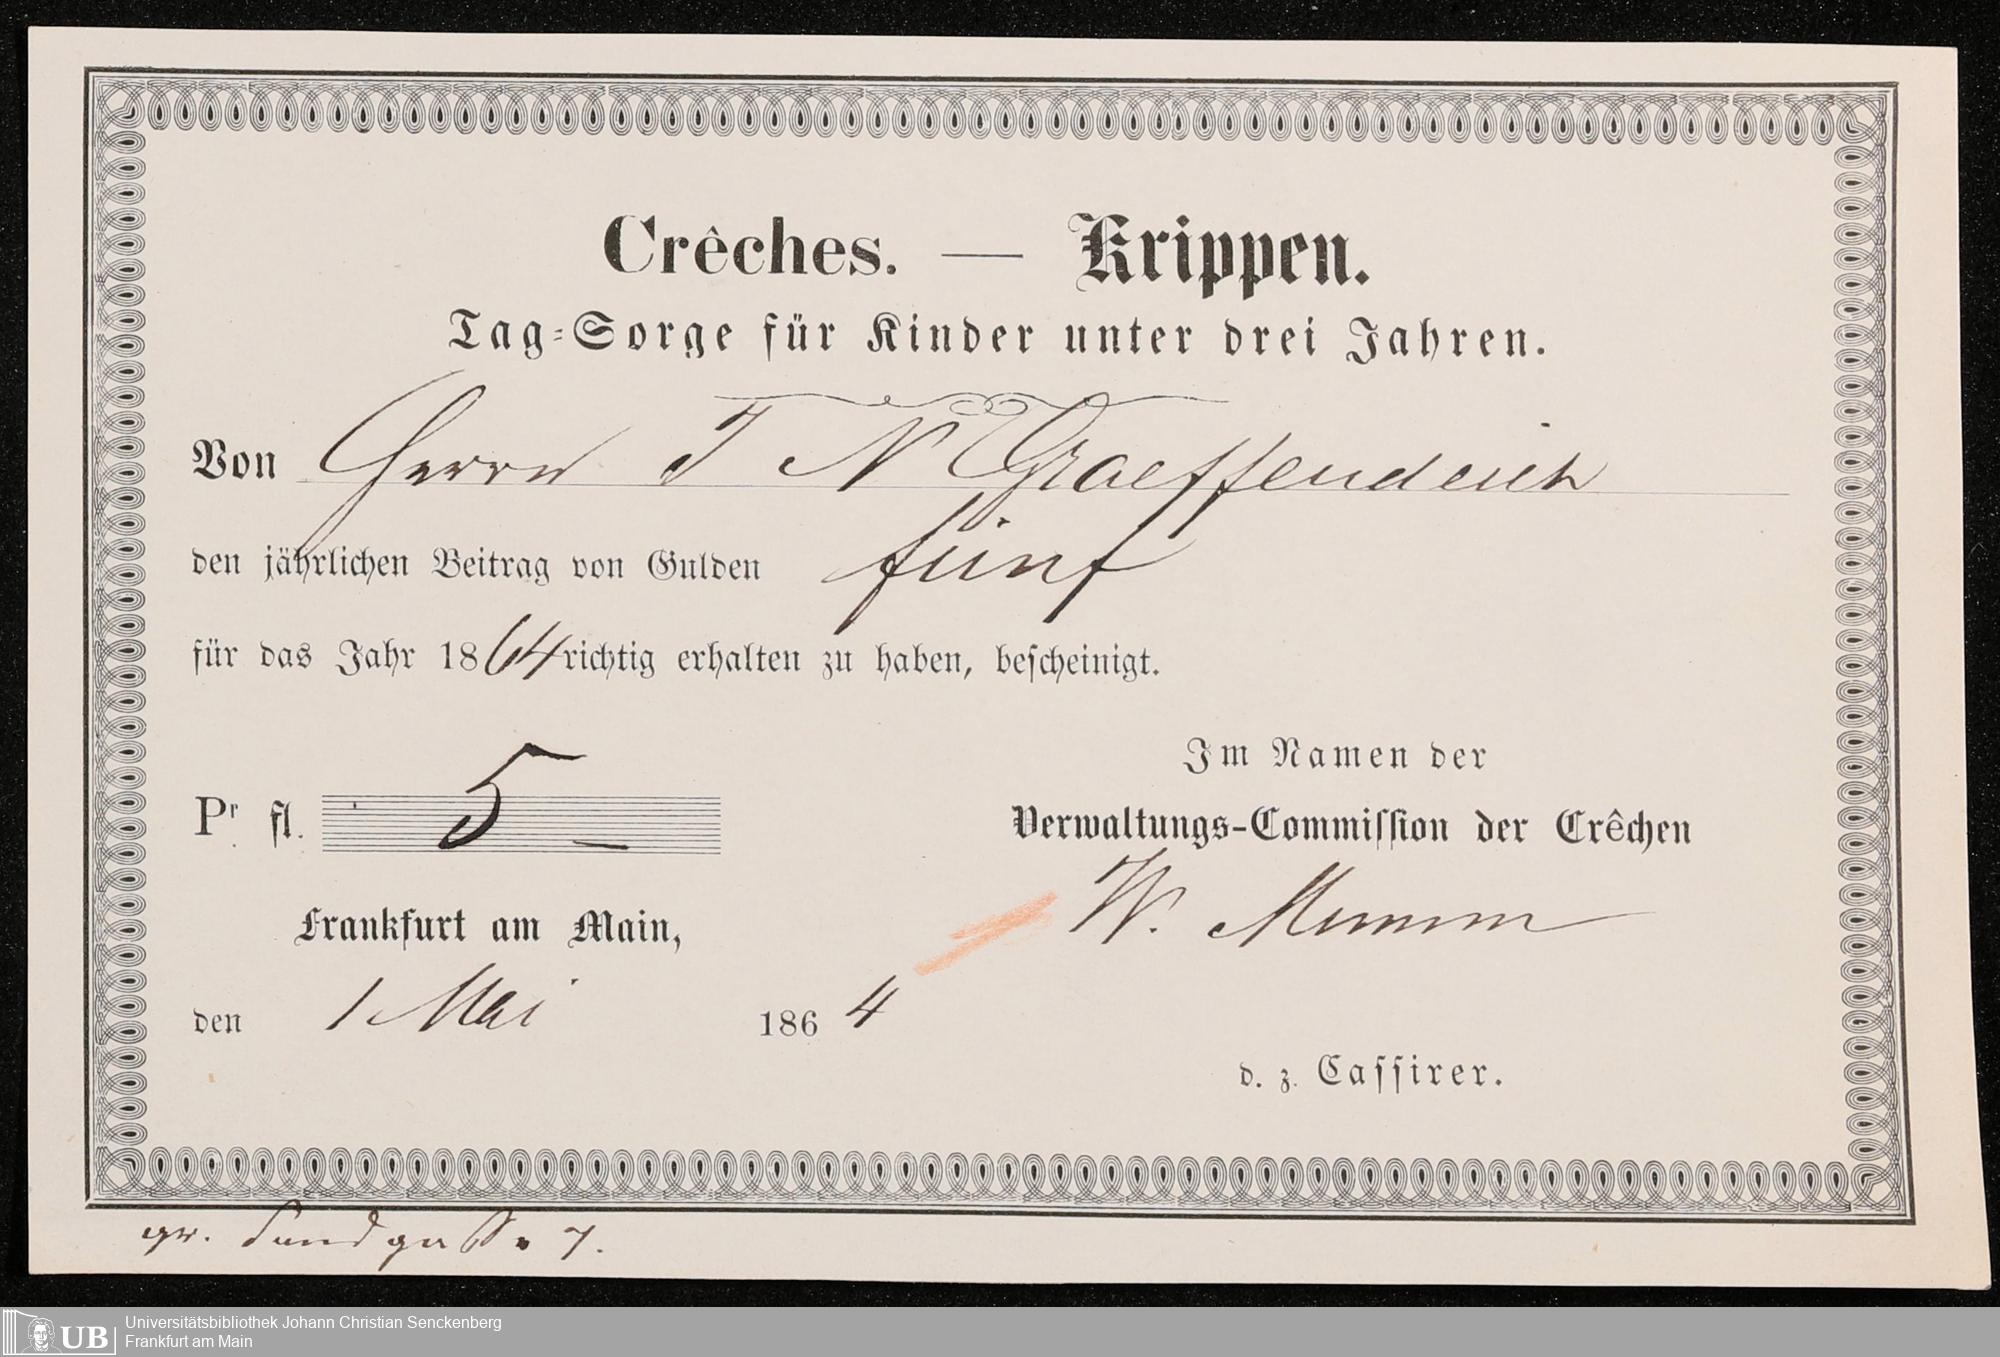 Crêches. — Krippen.
Tag-Sorge für Kinder unter drei Jahren.
Von Herrn J N Graeffendeich
den jährlichen Beitrag von Gulden fünf
für das Jahr 1864 richtig erhalten zu haben, bescheinigt.
Im Namen der
Pr fl. 5 –
Verwaltungs-Commission der Crêchen
W. Mumm
Frankfurt am Main,
den 1 Mai 1864
d. z. Cassirer.
gr. Sandgasse 7.
UB
Universitätsbibliothek Johann Christian Senckenberg
Frankfurt am Main